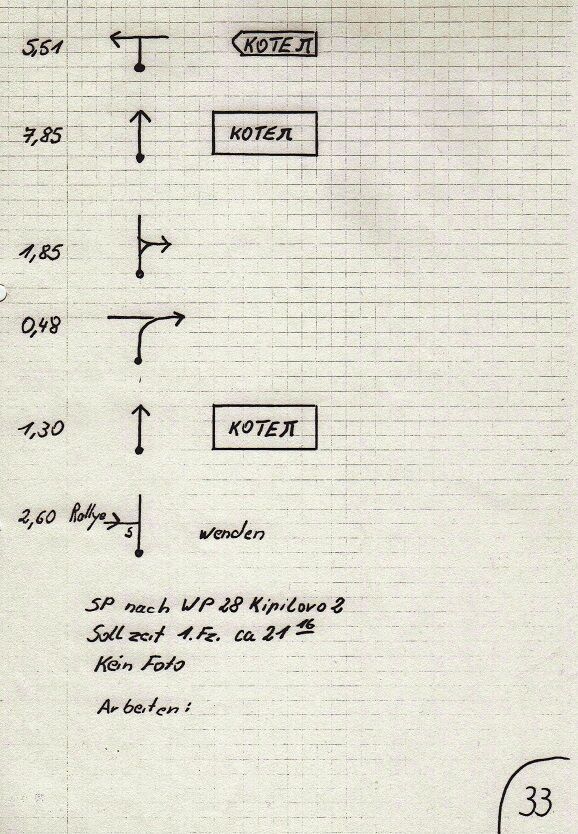 5,51 КОТЕЛ
7,85 КОТЕЛ
1,85
0,48
1,30 КОТЕЛ
2,60 Rallye S wenden
SP nach WP 28 Kipilovo 2
Sollzeit 1. Fz. ca 21 16
Kein Foto
Arbeiten:
33